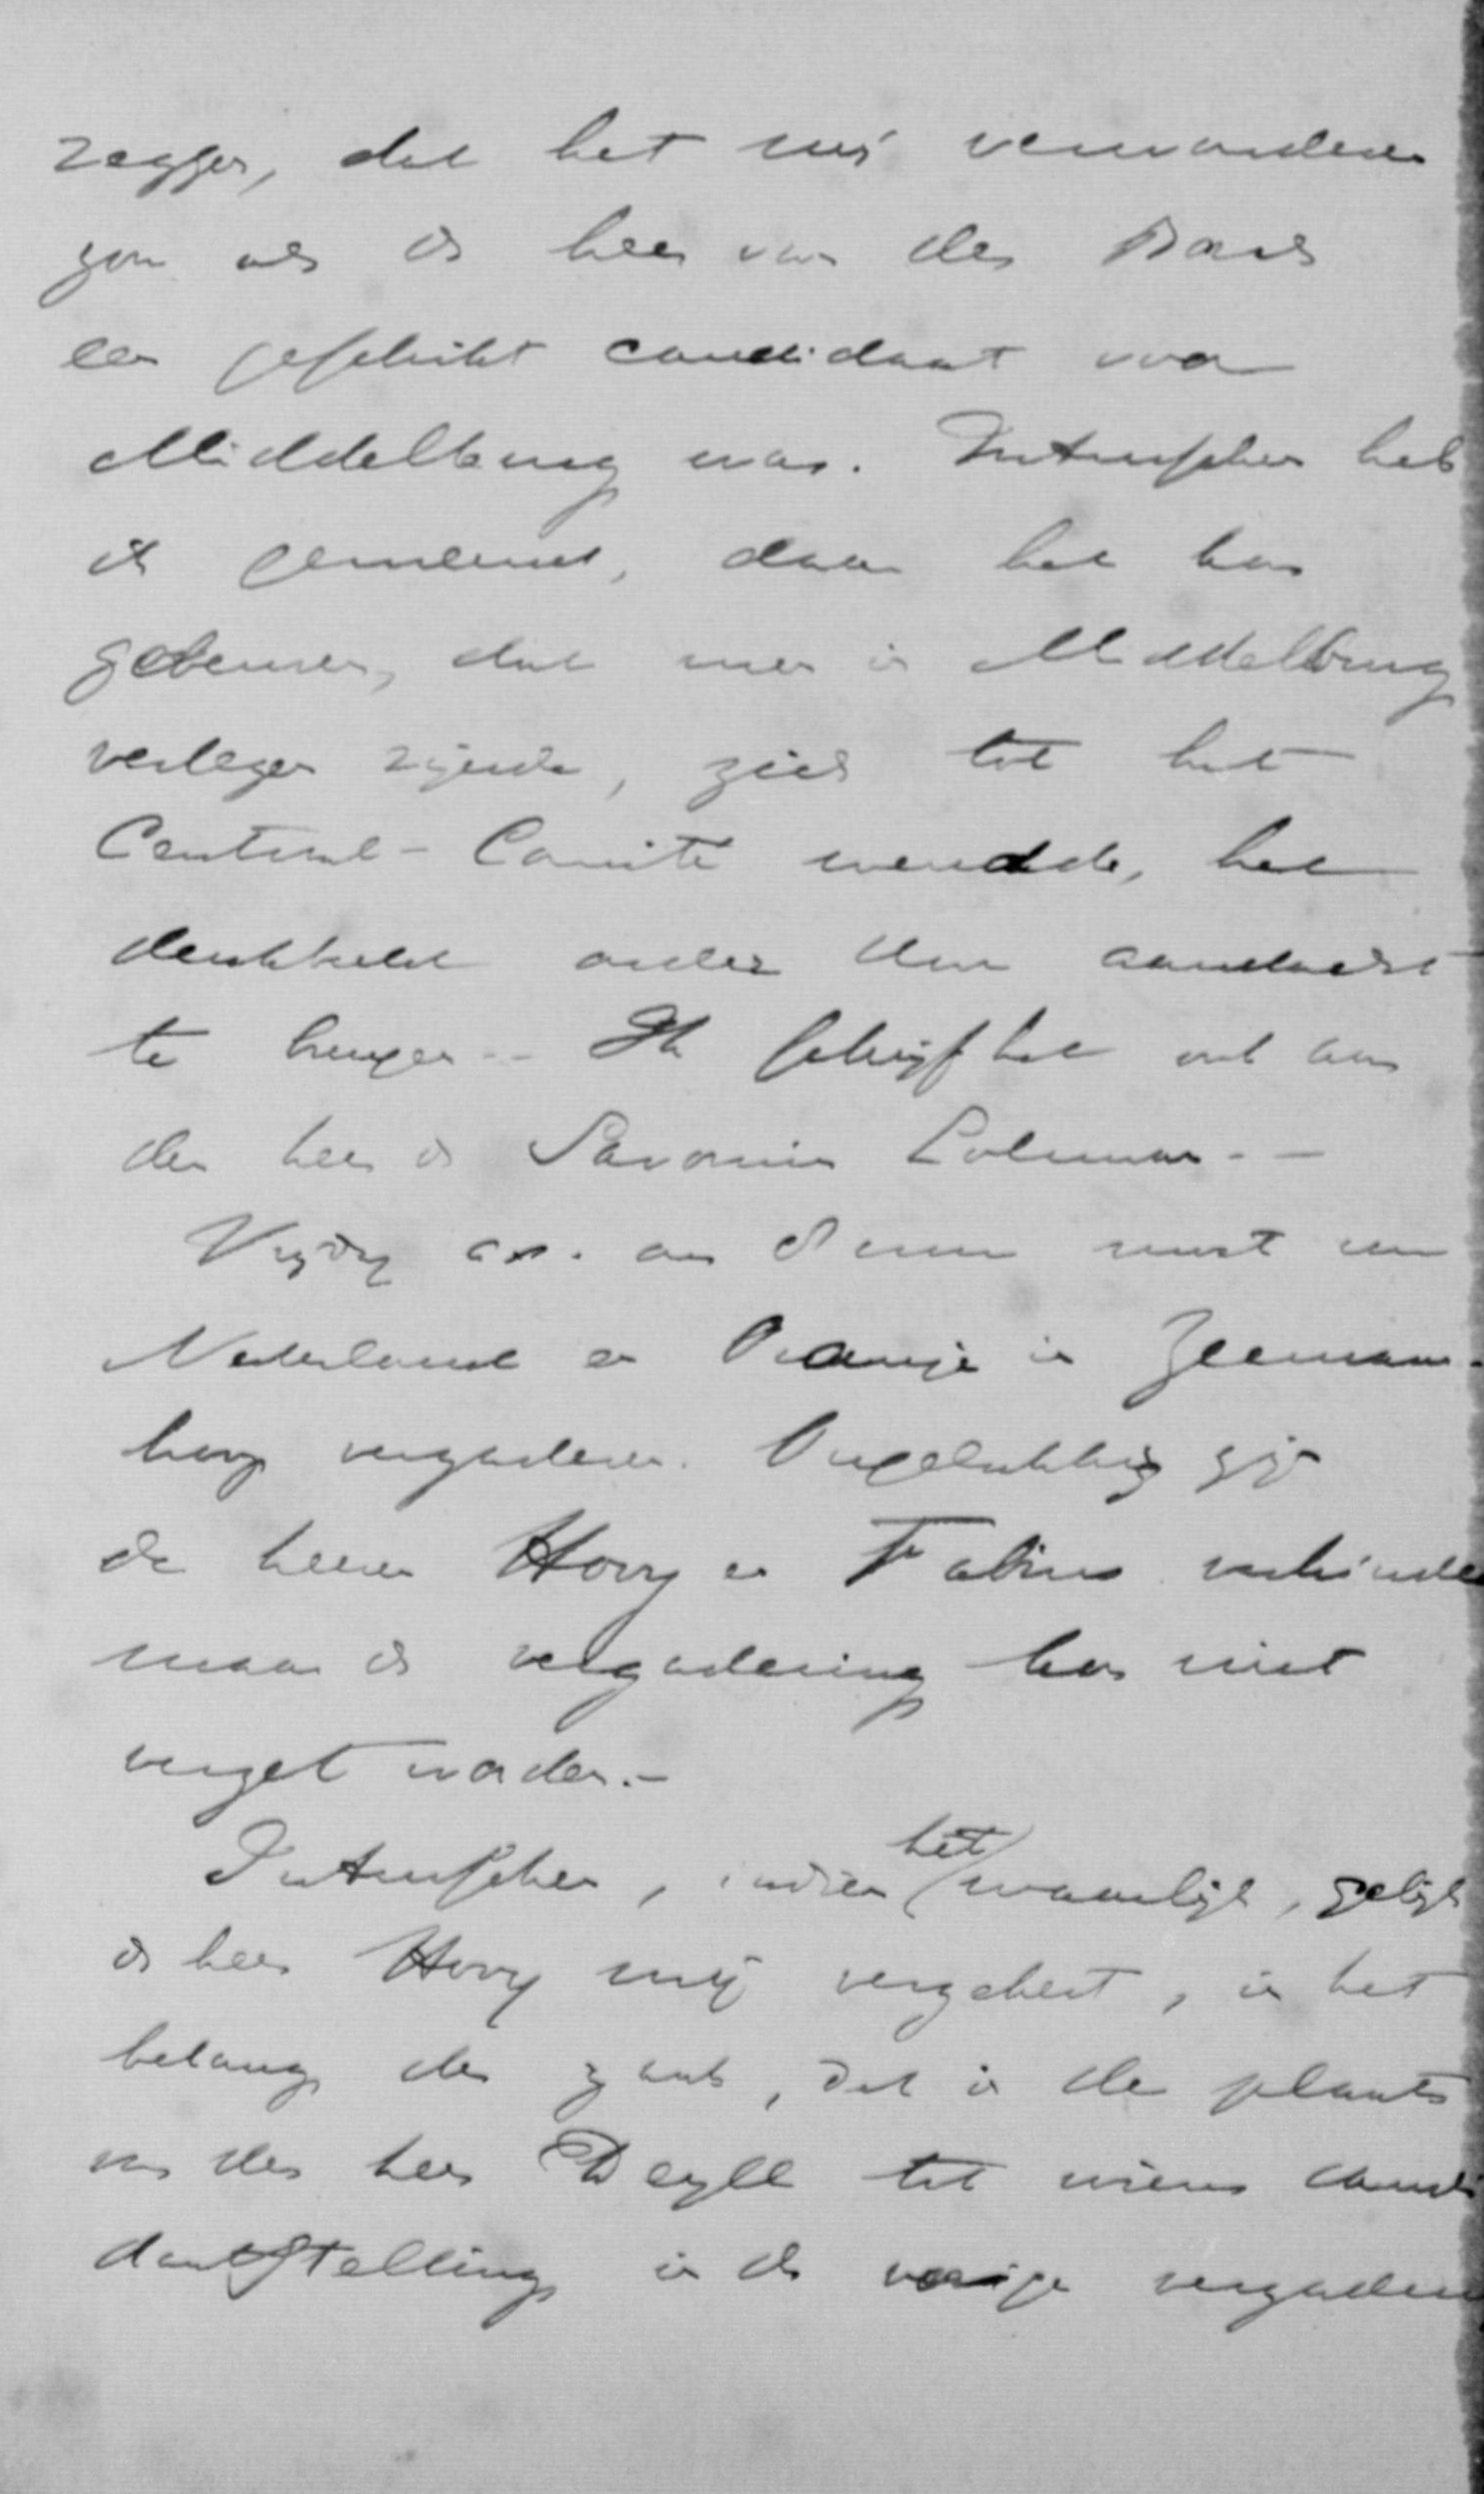 zeggen, dat het mij verwonderen
zou als de heer van der
een geschikt candidaat voor
Middelburg was. Intusschen heb
ik gemeend, daar het kan
gebeuren, dat men in Middelburg
verlegen zijnde, zich tot het
Centraal-Comité wendde, het
denkbeeld onder Uw aandacht
te brengen. - Ik schrijf het ook aan
den heer de Savornin Lohman. -
Vrijdag a.s. om 8 uur moet
Nederland en Oranje in Zeeman-
hoop vergaderen. Ongelukkig zijn
de heeren Hovy en Fabius verhinderd
maar de vergadering kan niet
verzet worden. -
Intusschen, indien het waarlijk, gelijk
de heer Hovy mij verzekert, in het
belang der zaak, dat in de plaats
van den heer Deyll tot wiens candi
daatstelling in de vorige vergadering